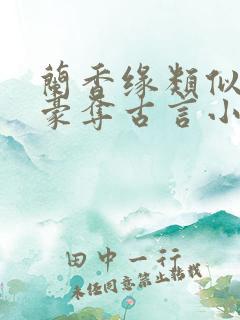 蘭香缘類似
豪夺古言小
田中一行
未经同意禁止转载